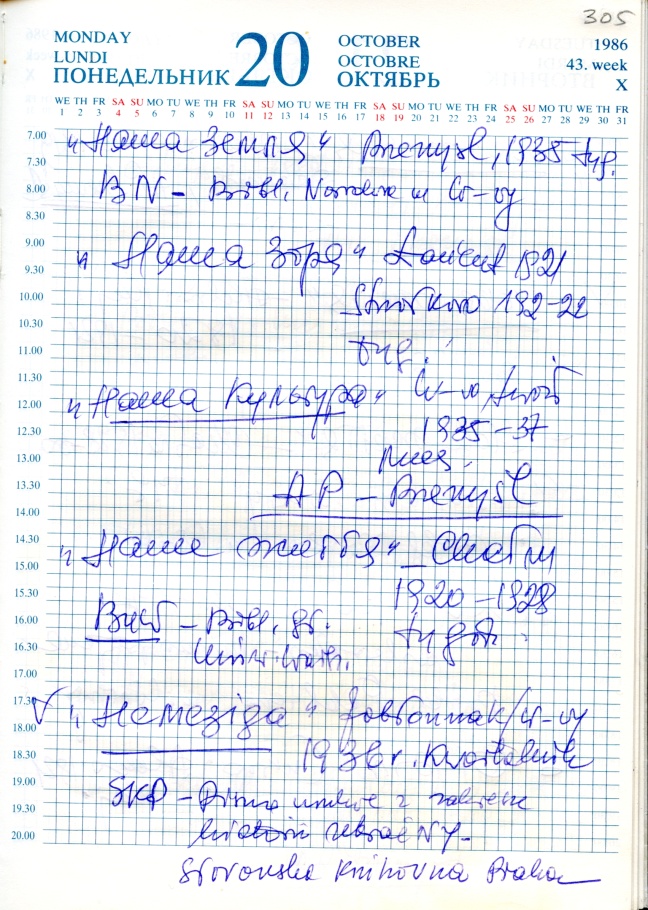 305
MONDAY
LUNDI
ПОНЕДЕЛЬНИК
20
OCTOBER
OCTOBRE
ОКТЯБРЬ
1986
43. week
X
WE TH FR SA SU MO TU WE TH FR SA SU MO TU WE TH FR SA SU MO TU WE TH FR SA SU MO TU WE TH FR
1 2 3 4 5 6 7 8 9 10 11 12 13 14 15 16 17 18 19 20 21 22 23 24 25 26 27 28 29 30 31
7.00
"Наша Земля" Przemyśl, 1935 tyg.
7.30
8.00
BN - Bibl. Narodowa w W-wy
8.30
9.00
"Наша Зоря" Łańcut 1921
9.30
10.00
Strzałkowo 192-22
10.30
11.00
tyg.
11.30
"Наша Культура" W-wa, Lwów
12.00
12.30
1935-37
13.00
mies.
13.30
AP - Przemyśl
14.00
14.30
"Наше життя" -
15.00
15.30
1920-1928
16.00
- Bibl. gł.
tygod.
16.30
Uniw. Warsz.
17.00
17.30
"Немезіда" Jabłonna k/W-wy
18.00
18.30
1936 r. Kwartalnik
19.00
SKP - Pismo z zakresie
19.30
20.00
Slovanska Knihovna Praha